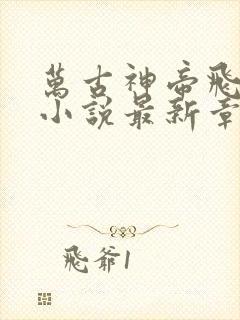 萬古神帝飛
小說最新章
飛爺1